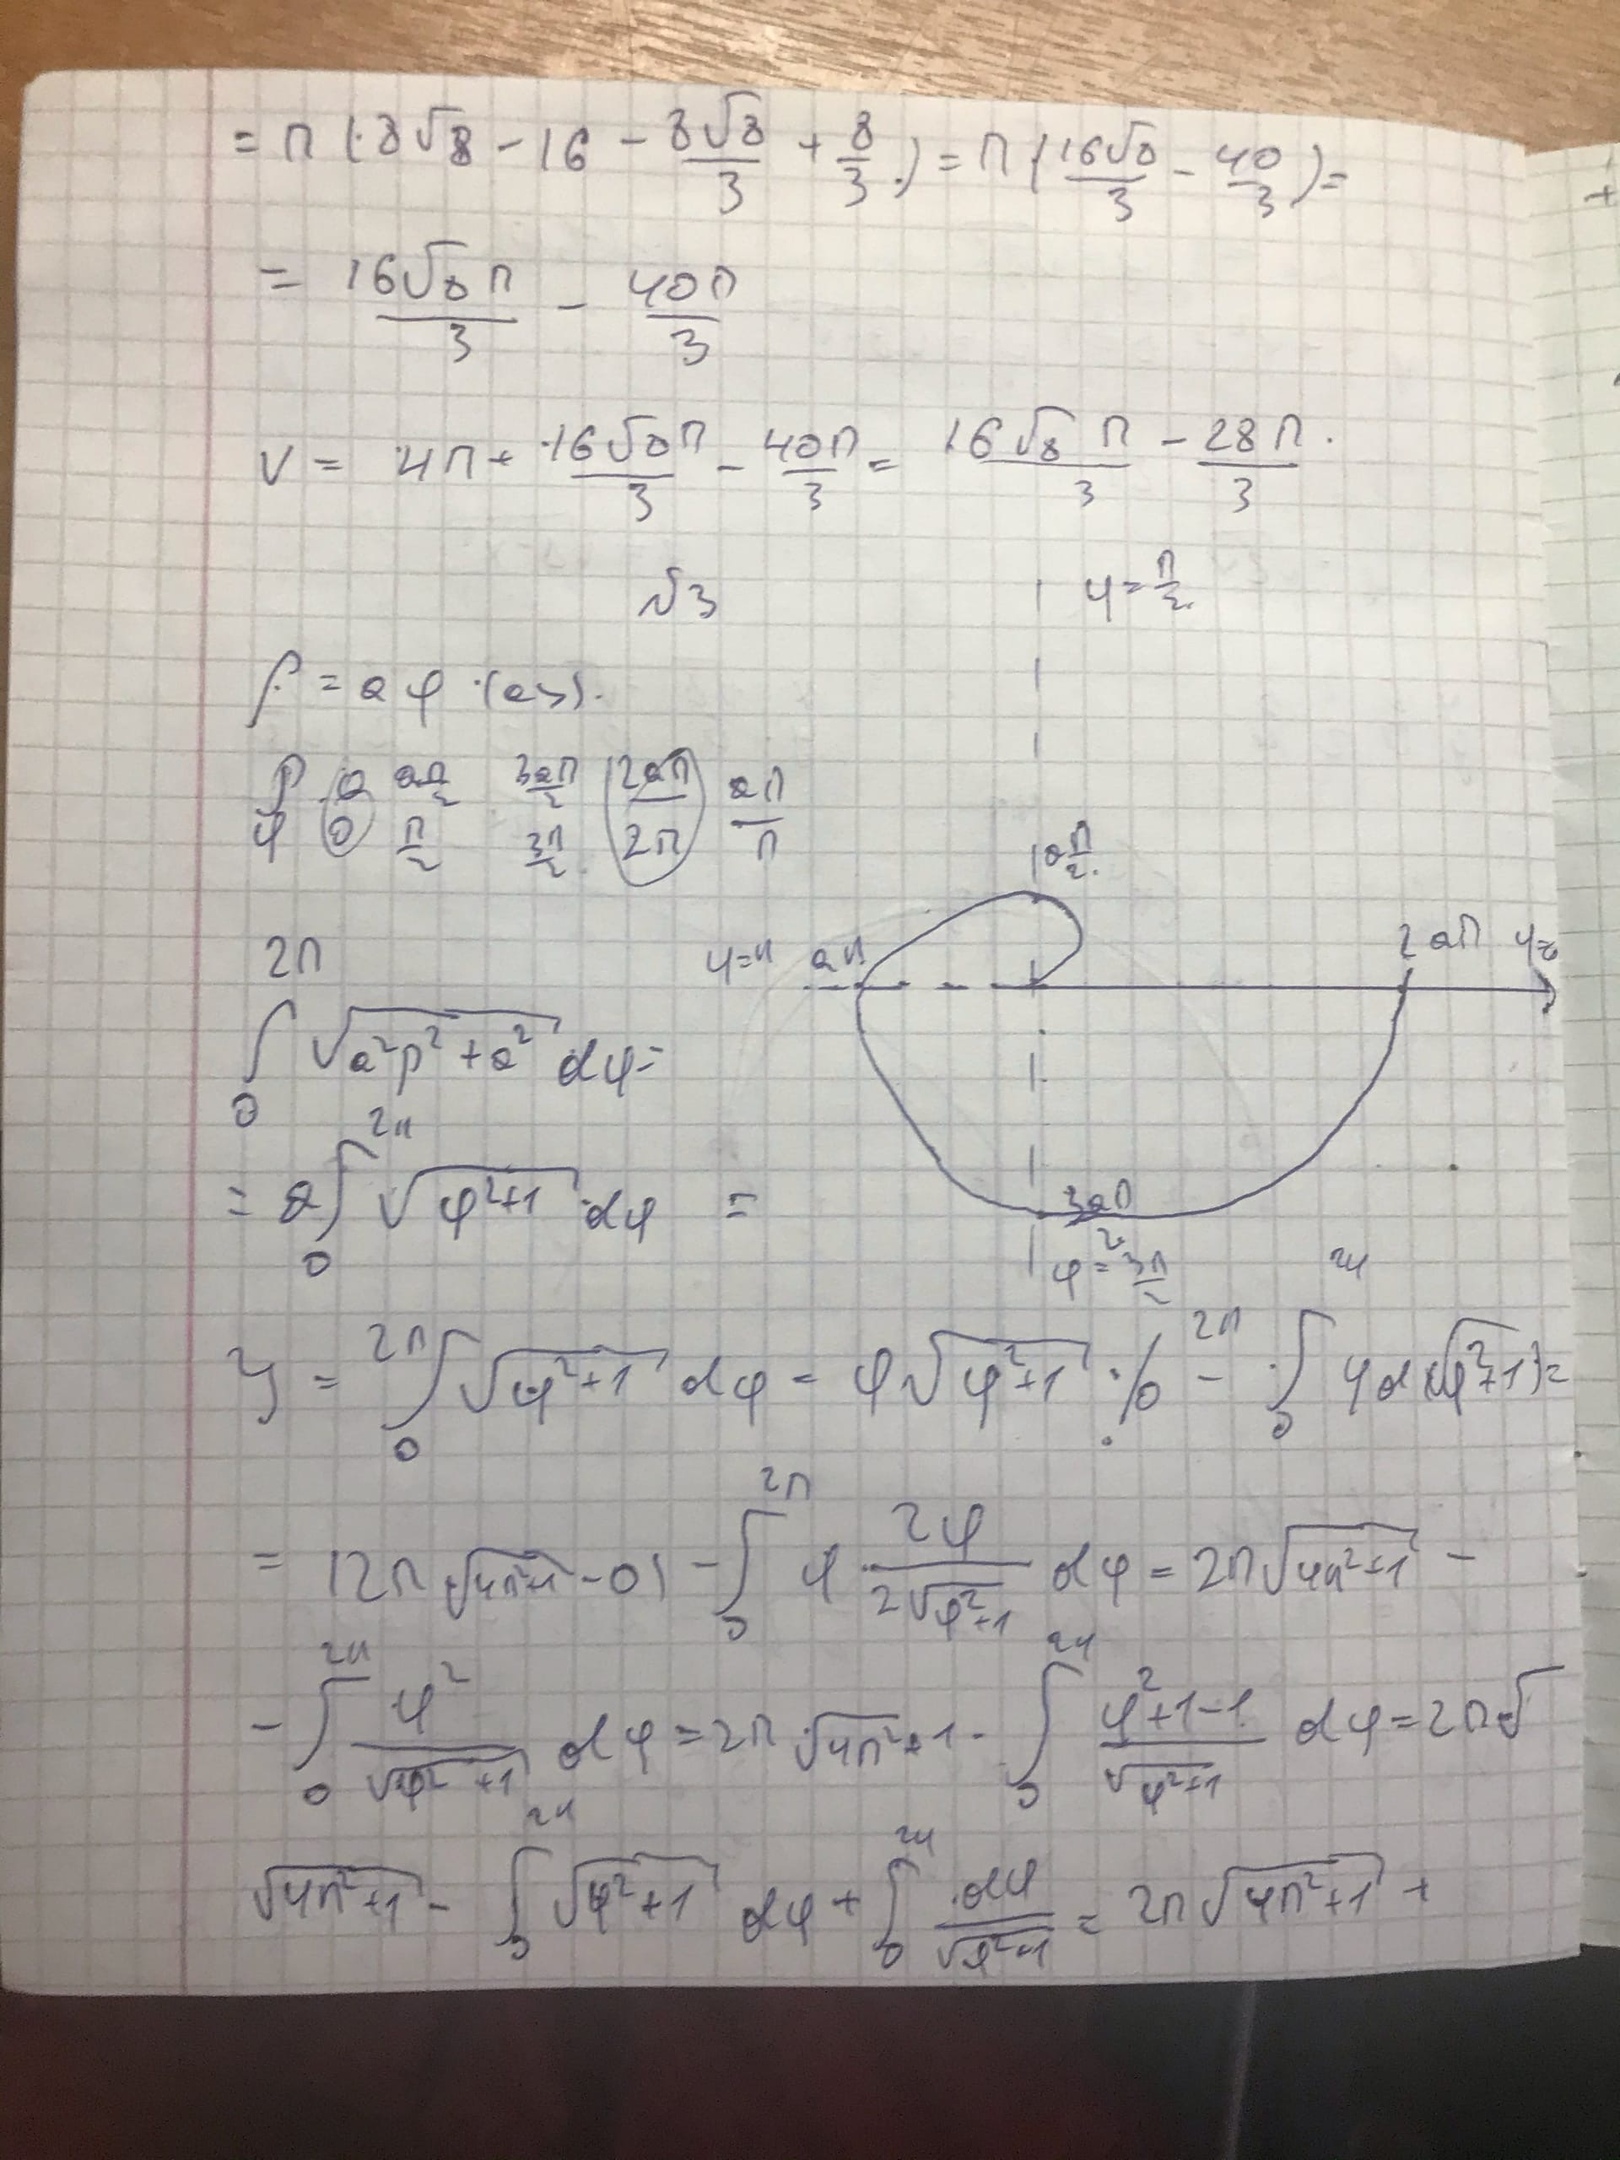 = π(8√8 - 16 - 8√8/3 + 8/3) = π(16√8/3 - 40/3) =
= 16√8π/3 - 40π/3
V = 4π + 16√8π/3 - 40π/3 = 16√8π/3 - 28π/3.
√3
φ = π/2
ρ = aφ (a>).
ρ 0 aπ/2 3aπ/2 2aπ aπ
φ 0 π/2 3π/2 2π π
aπ/2
φ=π aπ 2aπ φ=0
∫₀^2π √(a²φ² + a²) dφ =
= a∫₀^2π √(φ²+1) dφ =
3aπ/2
φ = 3π/2
J = ∫₀^2π √(φ²+1) dφ = φ√(φ²+1) |₀^2π - ∫₀^2π φ d(√(φ²+1)) =
= (2π√(4π²+1) - 0) - ∫₀^2π φ 2φ/(2√(φ²+1)) dφ = 2π√(4π²+1) -
- ∫₀^2π φ²/√(φ²+1) dφ = 2π√(4π²+1) - ∫₀^2π (φ²+1-1)/√(φ²+1) dφ = 2π√
√(4π²+1) - ∫₀^2π √(φ²+1) dφ + ∫₀^2π dφ/√(φ²+1) = 2π√(4π²+1) +